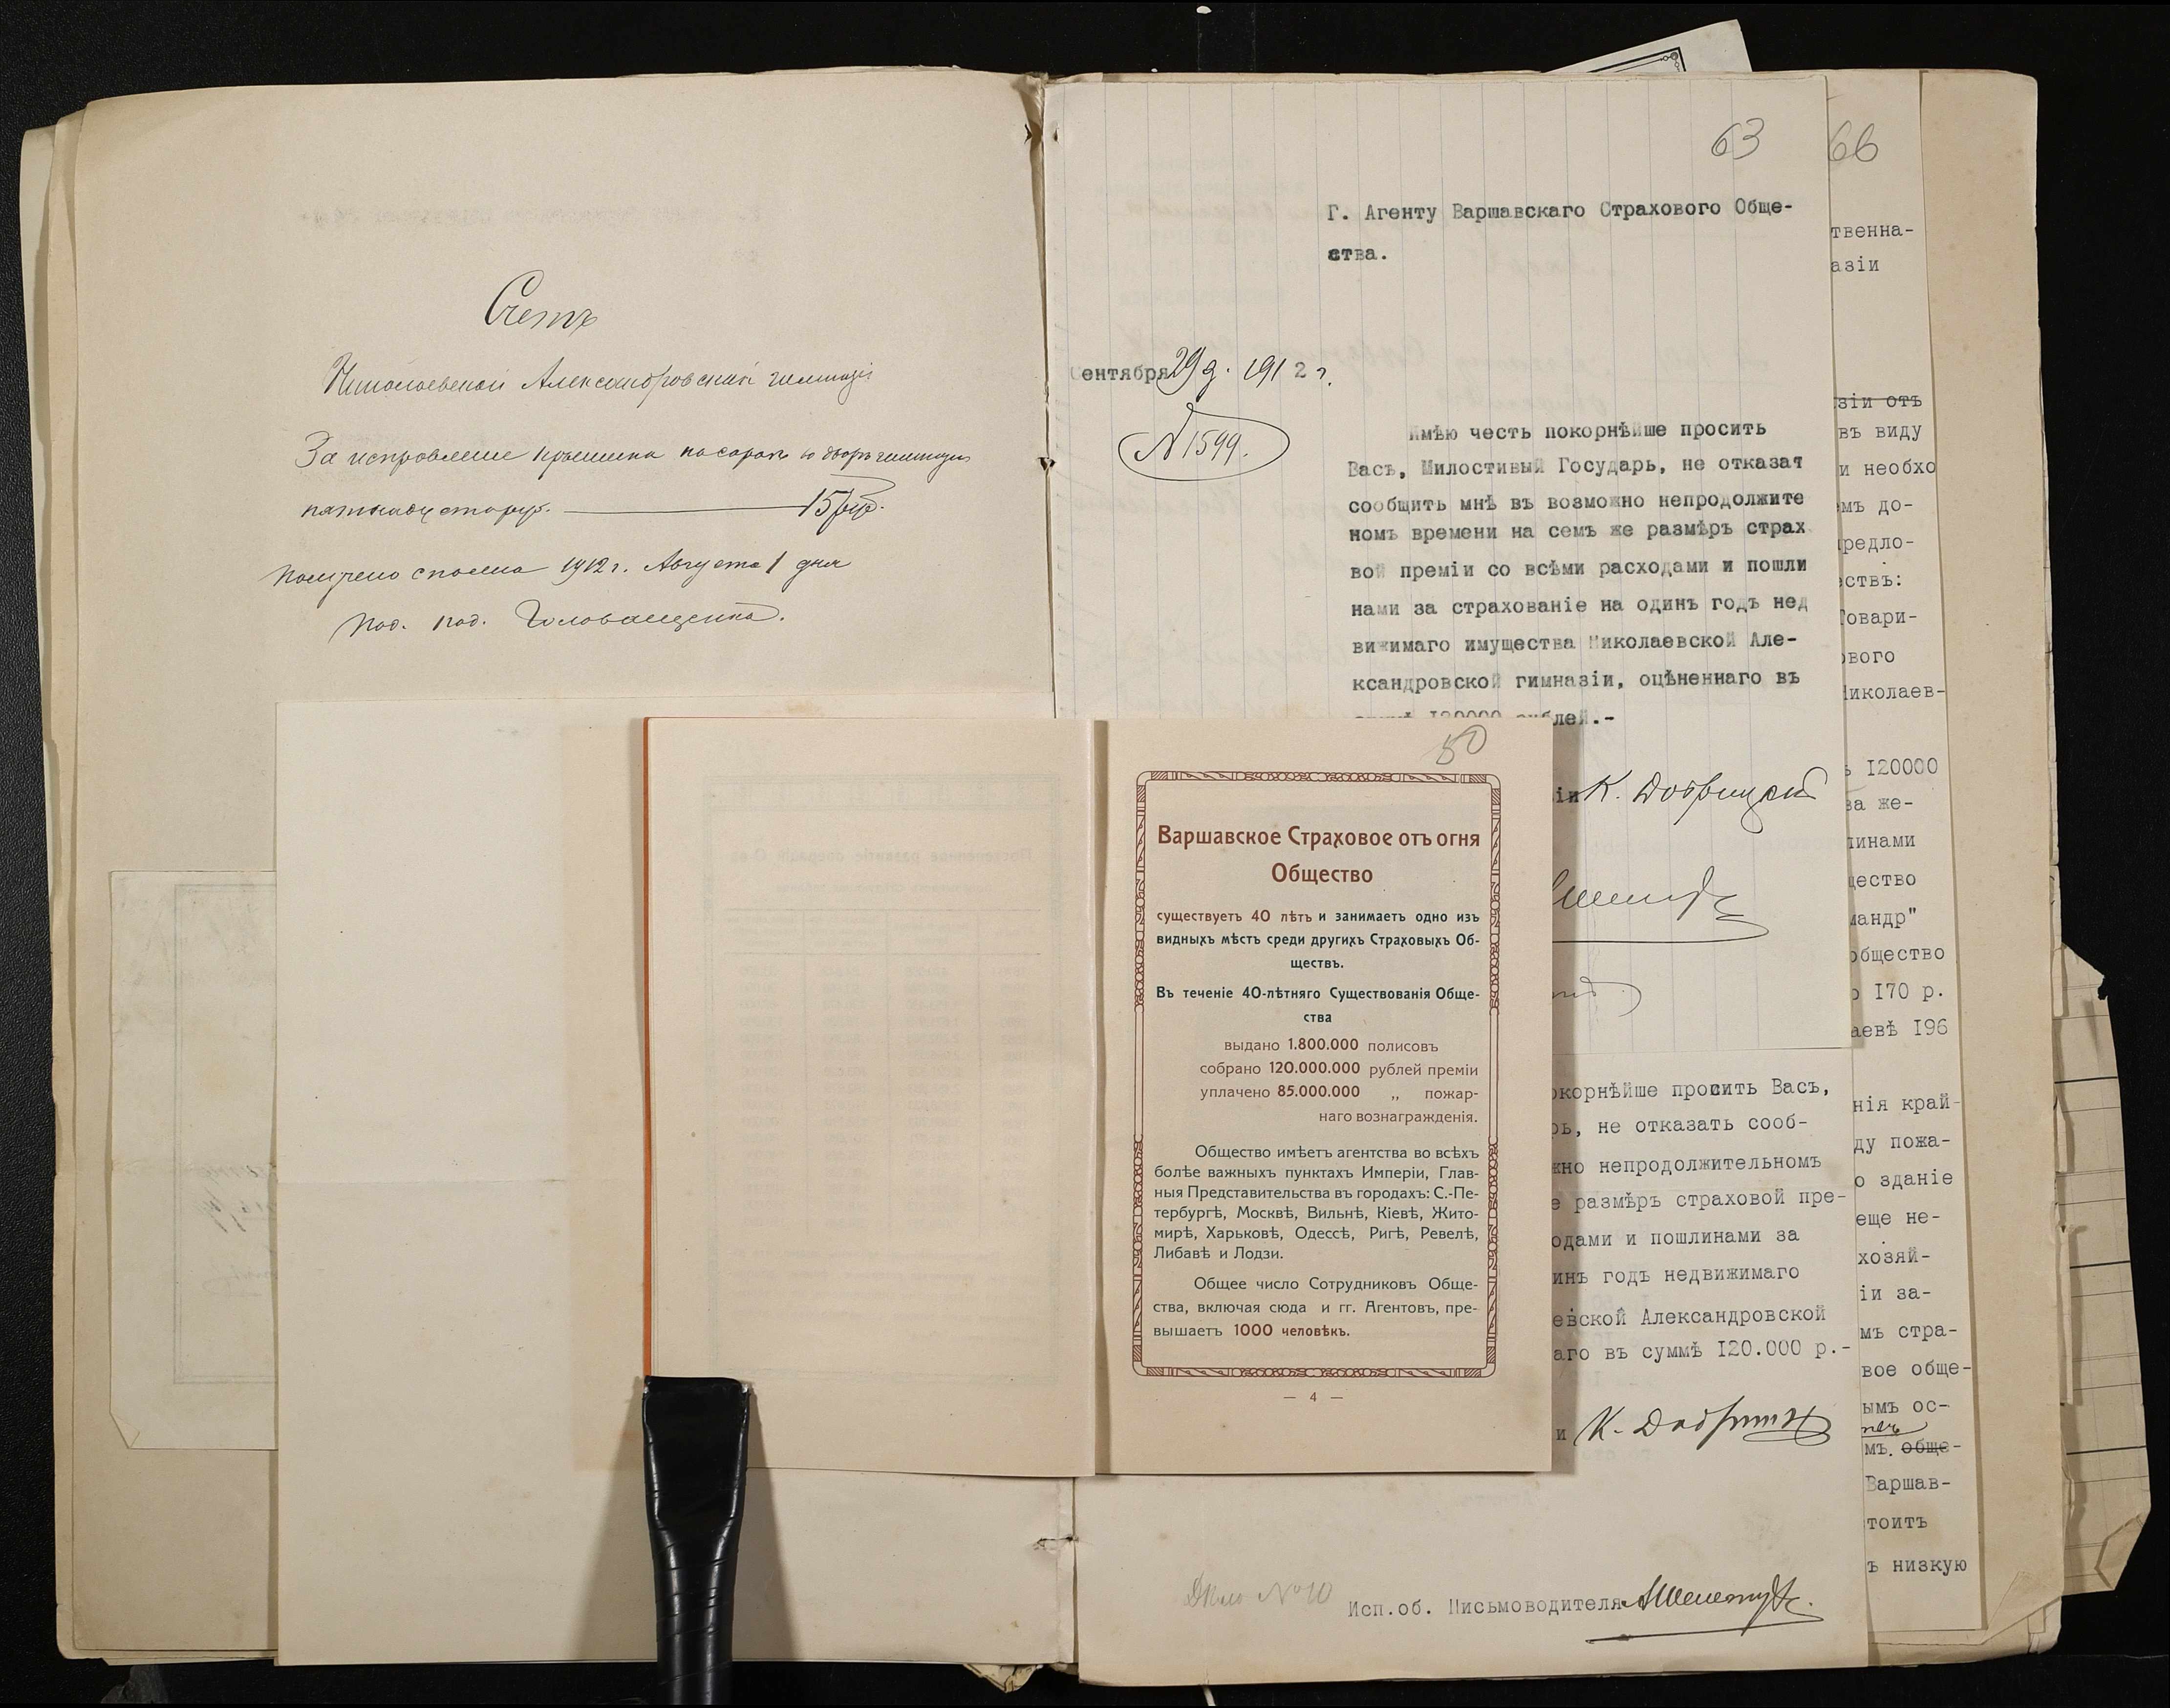 Счетъ
Николаевской Александровской гимназіи
За исправленіе крышина на сараѣ во дворѣ гимназіи
15 руб.
Получено сполна 1912 г. Августа 1 дня
63
Г. Агенту Варшавскаго Страхового Обще-
ства.
Сентября 29 д. 1912 г.
№ 1599.
Имѣю честь покорнѣйше просить
Васъ, Милостивый Государь, не отказат
сообщить мнѣ въ возможно непродолжите
номъ времени на семъ же размѣръ страх
вой преміи со всѣми расходами и пошли
нами за страхованіе на одинъ годъ нед
вижимаго имущества Николаевской Але-
ксандровской гимназіи, оцѣненнаго въ
суммѣ I20000 рублей.-
іи К. Добрицкій
50
Варшавское Страховое отъ огня
Общество
существуетъ 40 лѣтъ и занимаетъ одно изъ
видныхъ мѣстъ среди другихъ Страховыхъ Об-
ществъ.
Въ теченіе 40-лѣтняго Существованія Обще-
ства
выдано 1.800.000 полисовъ
собрано 120.000.000 рублей преміи
уплачено 85.000.000 „ пожар-
наго вознагражденія.
Общество имѣетъ агентства во всѣхъ
болѣе важныхъ пунктахъ Имперіи, Глав-
ныя Представительства въ городахъ: С.-Пе-
тербургѣ, Москвѣ, Вильнѣ, Кіевѣ, Жито-
мирѣ, Харьковѣ, Одессѣ, Ригѣ, Ревелѣ,
Либавѣ и Лодзи.
Общее число Сотрудниковъ Обще-
ства, включая сюда и гг. Агентовъ, пре-
вышаетъ 1000 человѣкъ.
— 4 —
окорнѣйше просить Васъ,
рь, не отказать сооб-
жно непродолжительномъ
е размѣръ страховой пре-
одами и пошлинами за
инъ годъ недвижимаго
евской Александровской
аго въ суммѣ I20.000 р.-
и К. Добрицкій
№ 10
Исп.об. Письмоводителя
66
твенна-
азіи
зіи отъ
въ виду
и необхо
мъ до-
редло-
ствъ:
Товари-
ового
Николаев-
ъ I20000
за же-
линами
щество
мандр"
общество
о I70 р.
аевѣ I96
нія край-
ду пожа-
о зданіе
еще не-
хозяй-
іи за-
мъ стра-
вое обще-
ымъ ос-
мъ. обще-
Варшав-
тоитъ
ъ низкую